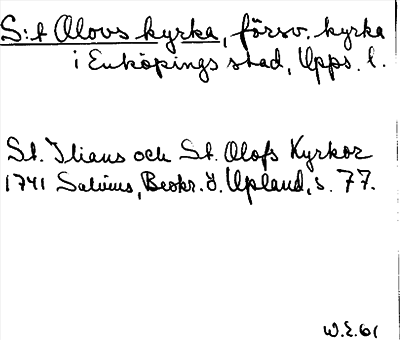 S:t Olovs kyrka, försv. kyrka
i Enköpings stad, Upps. l.
St. Ilians och St. Olofs Kyrkor
1741 Salvius, Beskr. ö. Upland, s. 77.
W.E.61